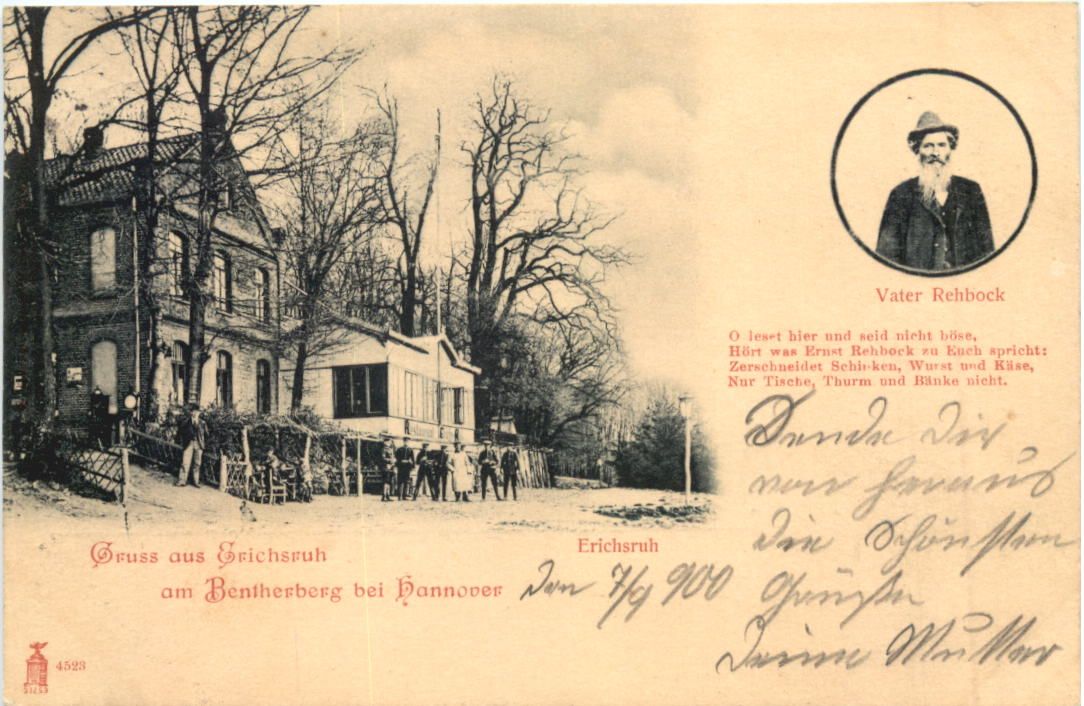 Vater Rehbock
O leset hier und seid nicht böse,
Hört was Ernst Rehbock zu Euch spricht:
Zerschneidet Schinken, Wurst und Käse,
Nur Tische, Thurm und Bänke nicht.
Sende Dir
von heraus
die Schönsten
Grüße
Deine Mutter
Erichsruh
den 7/9 900
Gruss aus Erichsruh
am Bentherberg bei Hannover
4523